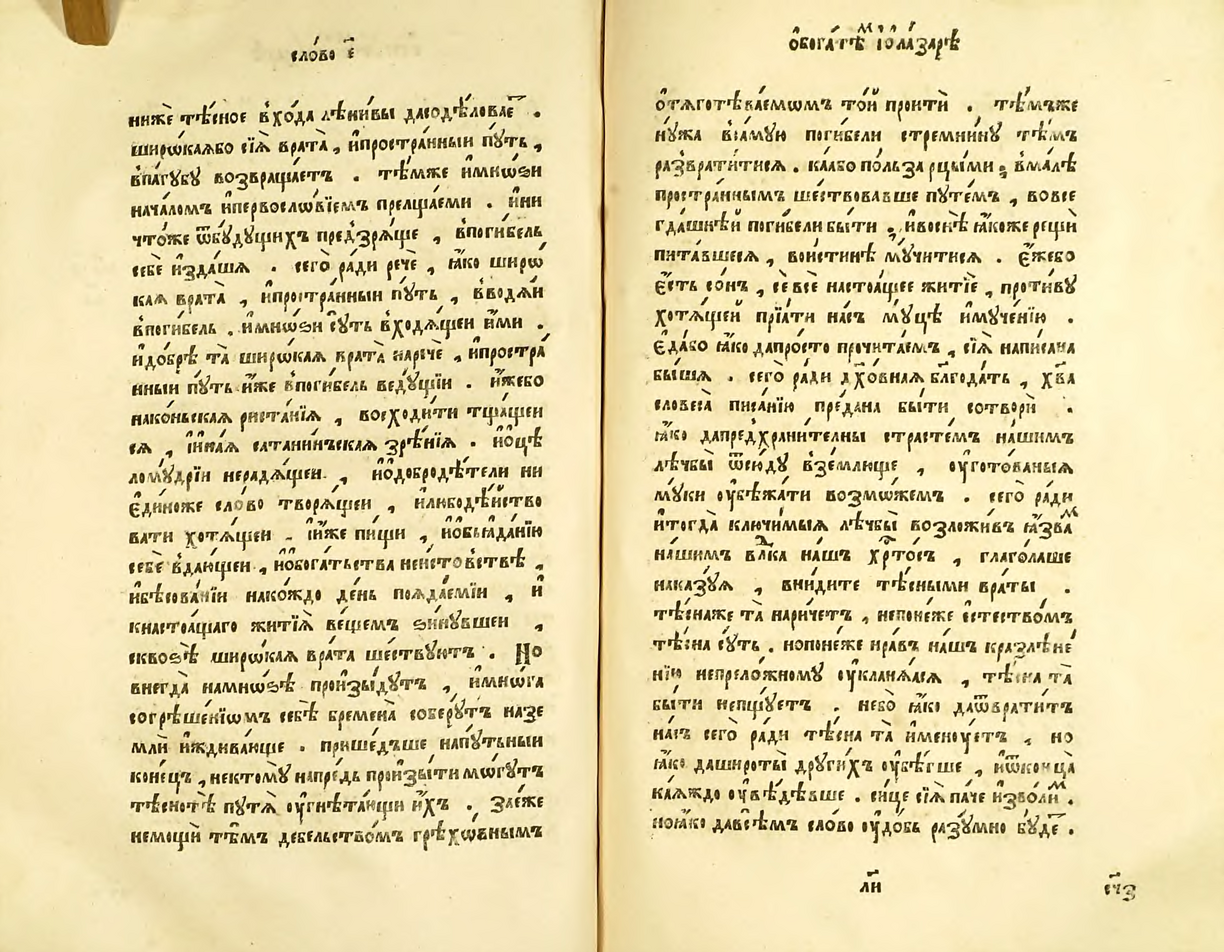 сло́во є҃
нижѐ тѣ́сное в̾хо́да лѣни́вы дасодѣ́ловае҇ .
широ́каѧбо сїѧ̀ врата̀ , и҆простра́нныи пꙋ́ть ,
в̾па́гꙋбꙋ возвраща́етъ . тѣ́мже и҆мно́ѕи
нача́ломъ и҆первосло́вїемъ прельща́еми . и҆ни
что́же ѿбꙋ́дꙋщихъ предзрѧ́ще , в̾поги́бель
себѐ и҆зда́шѧ . сего̀ ра́ди речѐ , ꙗ҆́ко широ
каѧ врата̀ , и҆простра́нныи пꙋ́ть , в̾водѧ́и
в̾поги́бель . и҆мно́ѕи сꙋ́ть в̾ходѧ́щеи и҆́ми .
и҆до́брѣ та̀ широ́каѧ врата̀ наречѐ , и҆простра́
нныи пꙋ́ть и҆́же в̾поги́бель ведꙋ́щїи . и҆̀жебо
нако́ньскаѧ риста́нїѧ , восходи́ти тща́щеи
сѧ , и҆и҆на́ѧ сатани́нъскаѧ зрѣ́нїѧ . и҆ѻ҆цѣ
ломꙋ́дрїи нерадѧ́щеи . , и҆ѻ҆добродѣ́тели ни
є҆ди́ноже сло́во творѧ́щеи , и҆любодѣ́йство
вати хотѧ́щеи . и҆и҆́же пи́щи , и҆ѻ҆бьꙗда́нїю
себѐ в̾даю́щеи , и҆ѻ҆бога́тьства неи́стовствѣ ,
и҆бѣсова́нїи нако́ждо де́нь поѧда́емїи , и҆
кнастоѧ́щаго житїѧ̀ ве́щемъ ѕинꙋ́вшеи ,
сквоѕѣ̀ широ́каѧ врата̀ ше́ствꙋютъ . Но
внегда̀ намно́ѕѣ прои́зыдꙋтъ , и҆мно́га
согрѣше́нїѡмъ себѣ̀ бремена̀ соберꙋ́тъ назе
млѝ и҆ждива́юще . прише́дъше напꙋ́тьныи
коне́цъ , нектомꙋ̀ напре́дь прои́зыти мо́гꙋтъ
тѣснотѣ̀ пꙋтѧ̀ ᲂу҆гнѣта́ющи и҆́хъ . зане́же
немо́щи тѣ́мъ дебельство́мъ грѣхо́внымъ
ѻ҆бога́тѣмъ и҆ѻла́зарѣ
ѻ҆тѧготѣва́емѡмъ то́и проитѝ . тѣ́мъже
нꙋ́жа в̾са́мꙋю поги́бели стремни́нꙋ тѣ́мъ
развратити́сѧ . ка́ѧбо по́льза рцы́ми ; в̾ма́лѣ
простра́ннымъ ше́ствовавше пꙋте́мъ , вовсе
гда́шнѣй поги́бели бы́ти ; и҆воснѣ̀ ꙗ҆́коже рещѝ
пита́вшесѧ , вои́стинѣ мꙋ́читисѧ . є҆́жебо
є҆́сть со́нъ , сѐ всѐ настоѧ́щее житїѐ , проти́вꙋ
хотѧ́щей прїѧ́ти на́съ мꙋ́цѣ и҆мꙋче́нїю .
є҆да́бо ꙗ҆́ко да́просто прочита́емъ , сїѧ̀ напи́сана
бы́шѧ . сего̀ ра́ди дх҃о́внаѧ блг҃ода́ть , хв҃а
словеса̀ писа́нїю пре́дана бы́ти сотворѝ .
ꙗ҆́ко дапредхрани́телны страсте́мъ на́шимъ
лѣ́чбы ѿсю́дꙋ взе́млюще , ᲂу҆гото́ваныѧ
мꙋ́ки ᲂу҆бѣжа́ти возмо́жемъ . сего̀ ра́ди
и҆тогда̀ ключи́мыѧ лѣ́чбы возложи́въ ꙗ҆́звамъ
на́шимъ влⷣка на́шъ хрⷭ҇то́съ , глаго́лаше
наказꙋ́ѧ , вни́дите тѣ́сными враты̀ .
тѣ́снаже та̀ нарича́етъ , непоне́же є҆стество́мъ
тѣ́сна сꙋ́ть . нопоне́же нра́въ на́шъ кразлѣне
нїю непрело́жномꙋ ᲂу҆клонѧ́ѧсѧ , тѣ́сна та̀
бы́ти непщꙋ́етъ . небо̀ ꙗ҆́ко даѿврати́тъ
на́съ сего̀ ра́ди тѣ́сна та̀ и҆менꙋ́етъ , но
ꙗ҆́ко дашироты̀ дрꙋги́хъ ᲂу҆бѣ́гше , и҆ѿконца̀
ка́ѧждо ᲂу҆вѣ́дѣвше . си́це сїѧ̀ па́че и҆зво́лимъ .
ноꙗ҆́ко давсѣ́мъ сло́во ᲂу҆до́бь разꙋ́мно бꙋ́де҇ .
ли
сч҃з